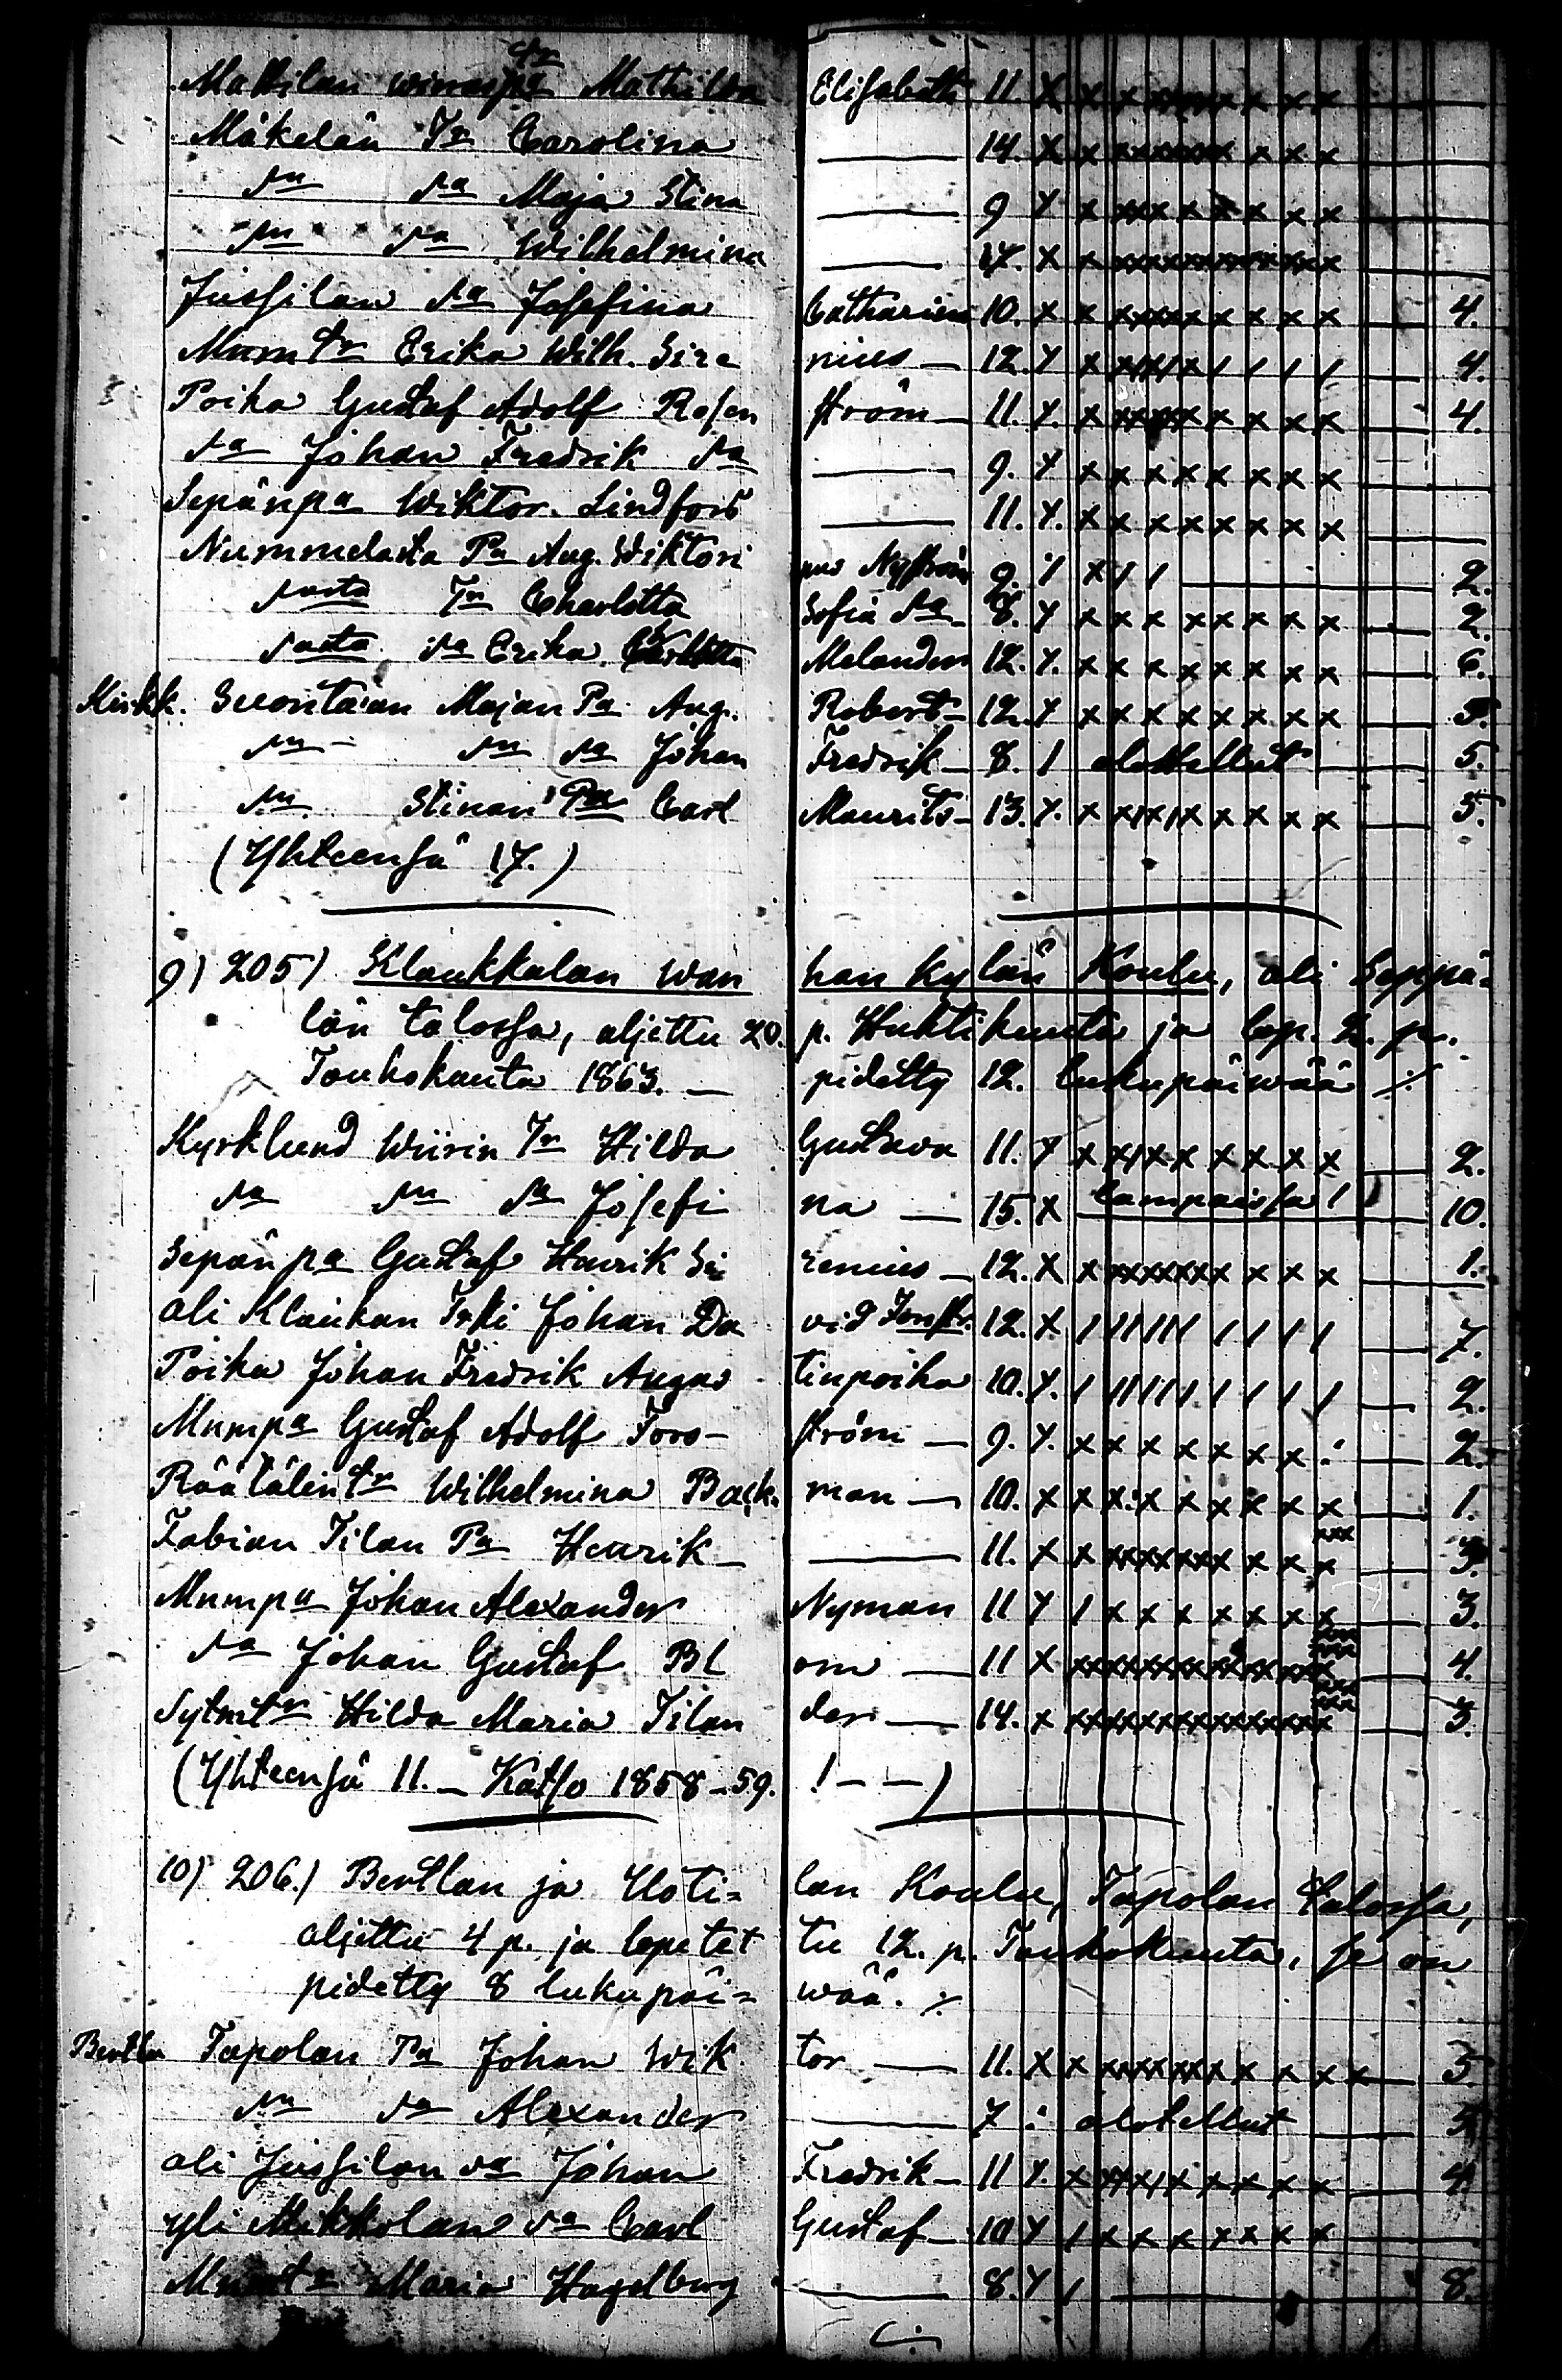 Mattilan Mathilda Elisabeth 11. x x x x x x x x x x
Mäkelän Tr Carolina — 14. x x x x x x x x x x
dn da Maja Stina — 9 x x x x x x x x x x
dn da Wilhelmina — 17. x x x x x x x x x x
Jussilan da Josefina Catharina 10. x x x x x x x x x x — 4.
Mum tr Erika Wilh. Sire nius — 12. x x x / x / x / / / / — 4.
Poika Gustaf Adolf Rosen ström — 11. x. x x x x x x x x x — 4.
da Johan Fredrik da — 9. x x x x x x x x x
Sepänpa Wiktor Lindfors — 11. x. x x x x x x x x
Nummelasta Pa Aug. Wiktori nus Nyström 9. / x / / — 2.
dasta Tr Charlotta Sofia da 8. x x x x x x x x x — 2.
dasta da Erika Melander 12. x. x x x x x x x x — 6.
Kirkk. Suontaan Majan Pa Aug. Robert — 12. x x x x x x x x x — 5.
dn dn da Johan Fredrik — 8. / olotellut — 5.
dn Stinan Pa Carl Maurits — 13. x. x x / x / x x x x x — 5.
(Yhteensä 17.)
9) 205) Klaukkalan wan han kylän Koulu, ali Seppä=
län talossa, aljettu 20. p. Huhtikuuta ja lop. 2. p.
Toukokuuta 1863. — pidetty 12. lukupäiwää ·/·
Kyrklund Wiirin Tr Hilda Gustava 11. x x x / x x x x x x — 2.
da dn da Josefi na — 15. x Lampaissa! 10.
Sepän pa Gustaf Henrik Si renius — 12. x x x x x x x x x x — 1.
ali Klaukan Johan Da vid 12. x / / / / / / / / / / — 7.
Poika Johan Fredrik Augus tinpoika 10. x. / / / / / / / / / / — 2.
Mumpa Gustaf Adolf Fors- ström — 9. x. x x x x x x x — 2.
Räätälin tr Wilhelmina Back. man — 10. x x x x x x x x x — 1.
Fabian Tilan Pa Henrik — — 11. x x x x x x x x x x — 3.
Mumpa Johan Alexander Nyman 11 x / x x x x x x x — 3.
da Johan Gustaf Bl om — 11 x x x x x x x x x x x — 4.
Sytmtr Hilda Maria Tilan der — 14. x x x x x x x x x x x — 3.
(Yhteensä 11. — Katso 1858–59. ! — —)
10) 206.) Bertlan ja Uoti= lan Koulu, Tapolan talossa,
aljettu 4 p. ja lopetet tu 12. p. Toukokuuta, se on
pidetty 8 lukupäi= wää. ·/·
Bertlan Tapolan Pa Johan Wik tor — 11. x x x x x x x x x x x — 5.
dn da Alexander — 7 olotellut — 5.
ali Jussilan da Johan Fredrik — 11 x. x x x x x x x x x — 4.
yli Mikkolan da Carl Gustaf — 10 x / x x x x x x x
Mumtr Maria Hagelberg — 8. x / — 8.